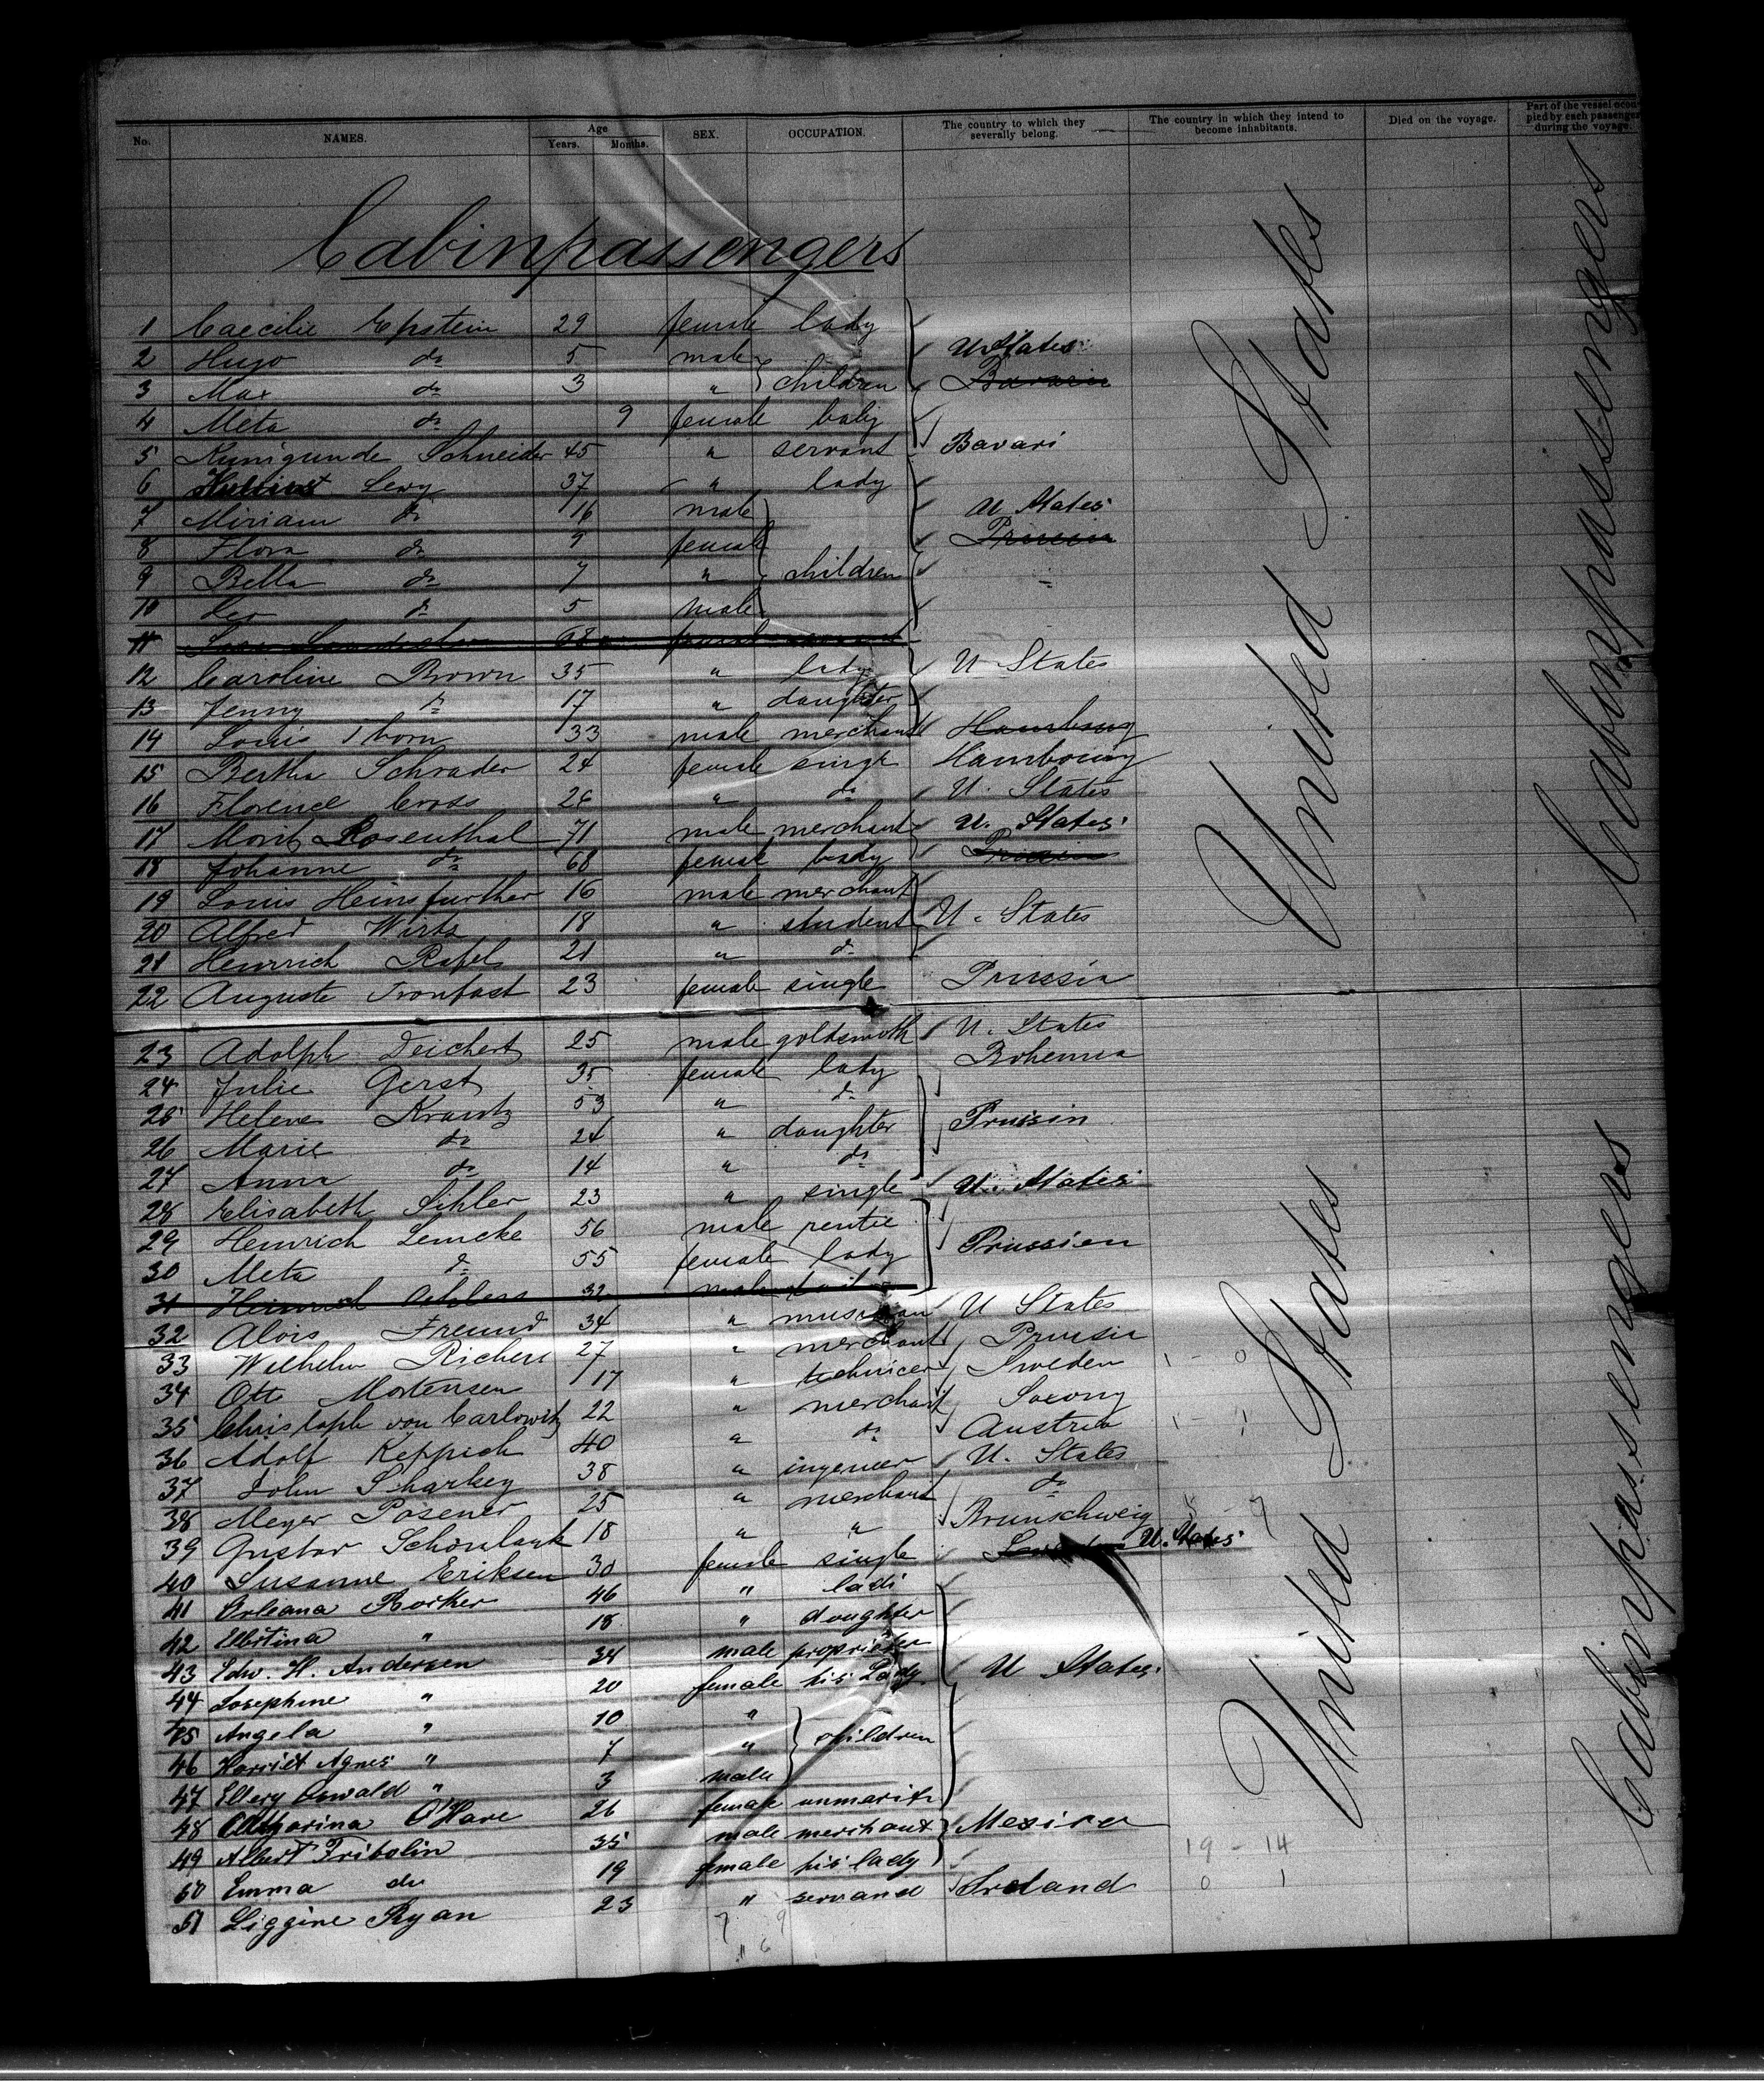 No. NAMES. Age Years. Months. SEX. OCCUPATION. The country to which they severally belong. The country in which they intend to become inhabitants. Died on the voyage. Part of the vessel occupied by each passenger during the voyage.
Cabinpassengers
1 Caecilie Epstein 29 female lady
2 Hugo do 5 male U States
3 Max do 3 " children Bavaria
4 Meta do 9 female baby
5 Kunigunde Schneider 45 " servant Bavari
6 Levy 37 " lady
7 Miriam do 16 male U States
8 Flora do 9 female Prussia
9 Bella do 7 " children
10 Leo do 5 male
11 68 female servant
12 Caroline Brown 35 " lady U States
13 Jenny do 17 " daughter
14 Louis Thorn 33 male merchant Hamburg
15 Bertha Schrader 24 female singl Hambourg
16 Florence Cross 26 " do U. States
17 Morit Rosenthal 71 male merchant U. States
18 Johanne do 68 female lady Prussia
19 Louis Heinsfurther 16 male merchant
20 Alfred Wirtz 18 " student U. States
21 Heinrich 21 " do
22 Auguste Tronfast 23 female single Prussia
23 Adolph Deichert 25 male goldsmoth U. States
24 Julie Gerst 35 female lady Bohemia
25 Helene Krantz 53 " do
26 Marie do 24 " daughter Prussin
27 Anna do 14 " do
28 Elisabeth Sihler 23 " single U. States
29 Heinrich Lemcke 56 male rentie
30 Meta do 55 female lady Prussien
31 Heinrich Ahlers 32 male
32 Alois Freund 34 " musician U States
33 Wilhelm Richers 27 " merchant Prussia
34 Otto Mortensen 17 " technicer Sweden 1 - 0
35 Christoph von Carlowitz 22 " merchant Saxony
36 Adolf Keppich 40 " do Austria 1 - 1
37 John Sharkey 38 " ingenieer U. States
38 Meyer Posener 25 " merchant do
39 Gustav 18 " " Brunschweig
40 Susanne Eriksen 30 female single U. States
41 Orleana Rorker 46 " ladi
42 Elbitina " 18 " doughter
43 Edw. H. Andersen 34 male proprieter
44 Josephine " 20 female his Lady U States
45 Angela " 10 "
46 Harriet Agnes " 7 " children
47 Ellery Oswald " 3 male
48 Catharina O'Hare 26 female
49 Albert Fribolin 35 male merchant Mexico
50 Emma do 19 female his lady 19 - 14
51 Liggine Ryan 23 " servand Ireland 0 1
7 9
" 6
United States
United States
Cabinpassengers
Cabinpassengers